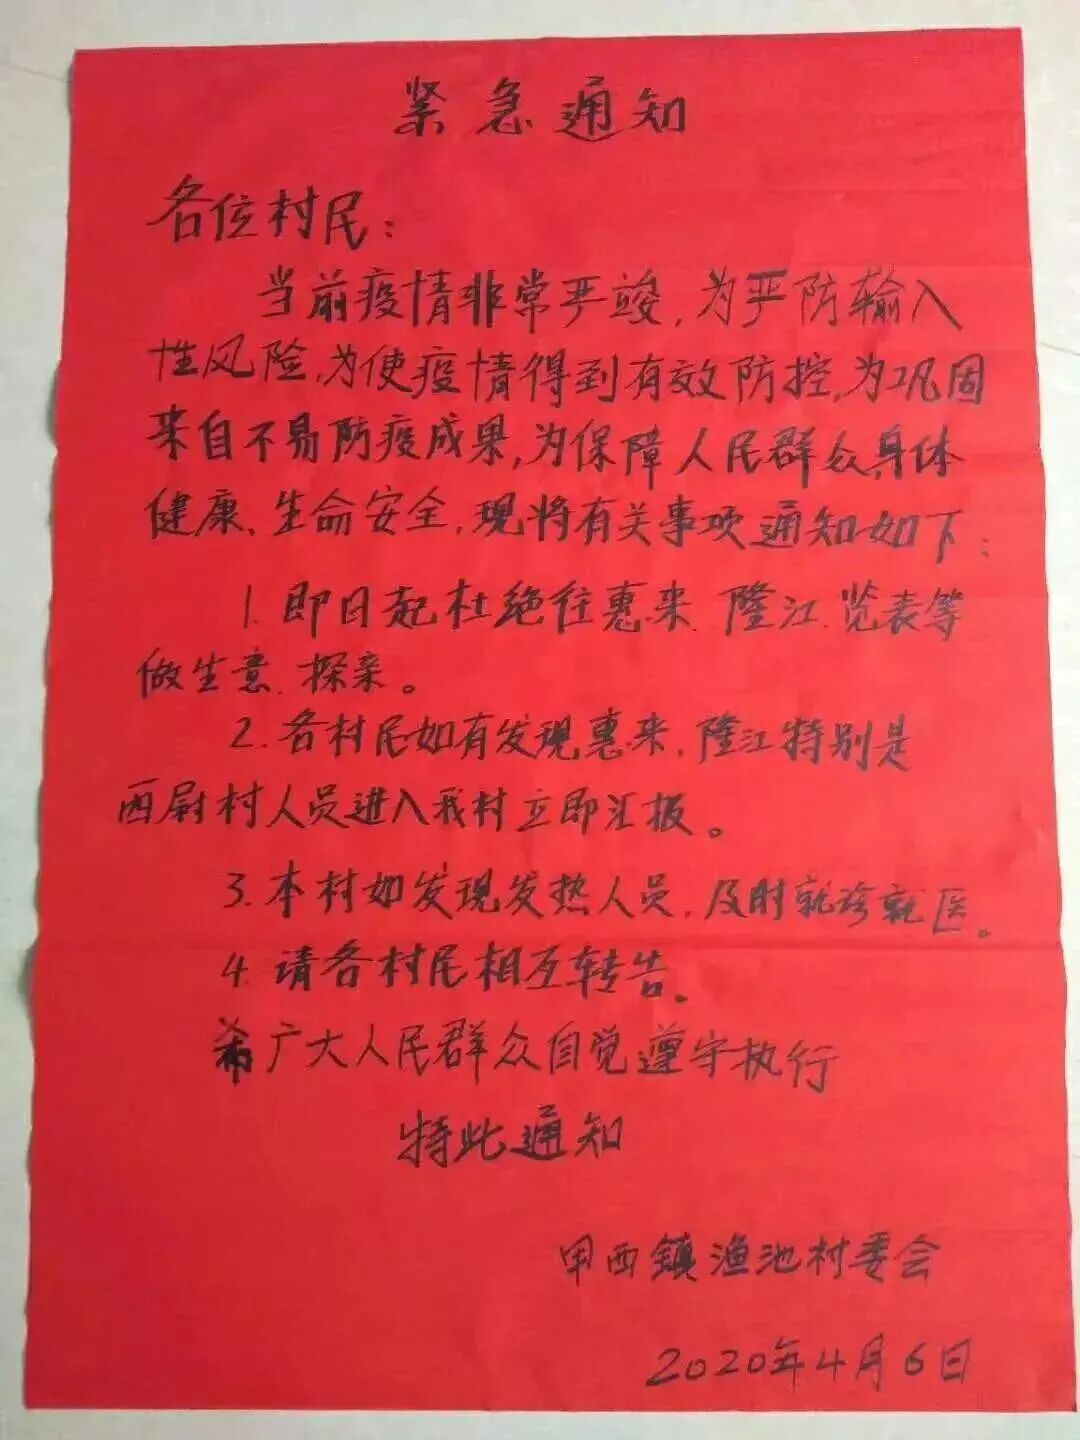 紧急通知
各位村民：
当前疫情非常严竣，为严防输入
性风险，为使疫情得到有效防控，为巩固
来自不易防疫成果，为保障人民群众身体
健康、生命安全，现将有关事项通知如下：
1. 即日起杜绝往惠来、隆江、览表等
做生意、探亲。
2. 各村民如有发现惠来，隆江特别是
西尉村人员进入我村立即汇报。
3. 本村如发现发热人员，及时就诊就医。
4. 请各村民相互转告。
希广大人民群众自觉遵守执行
特此通知
甲西鎮渔池村委会
2020年4月6日